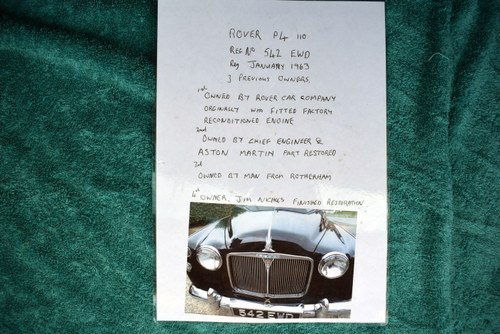 ROVER P4 110
REG No 542 EWD
Reg JANUARY 1963
3 PREVIOUS OWNERS
1st
OWNED BY ROVER CAR COMPANY
ORGINALLY WAS FITTED FACTORY
RECONDITIONED ENGINE
2nd
OWNED BY CHIEF ENGINEER @
ASTON MARTIN PART RESTORED
3rd
OWNED BY MAN FROM ROTHERHAM
4th OWNER. JIM FINISHED RESTORATION
542 EWD